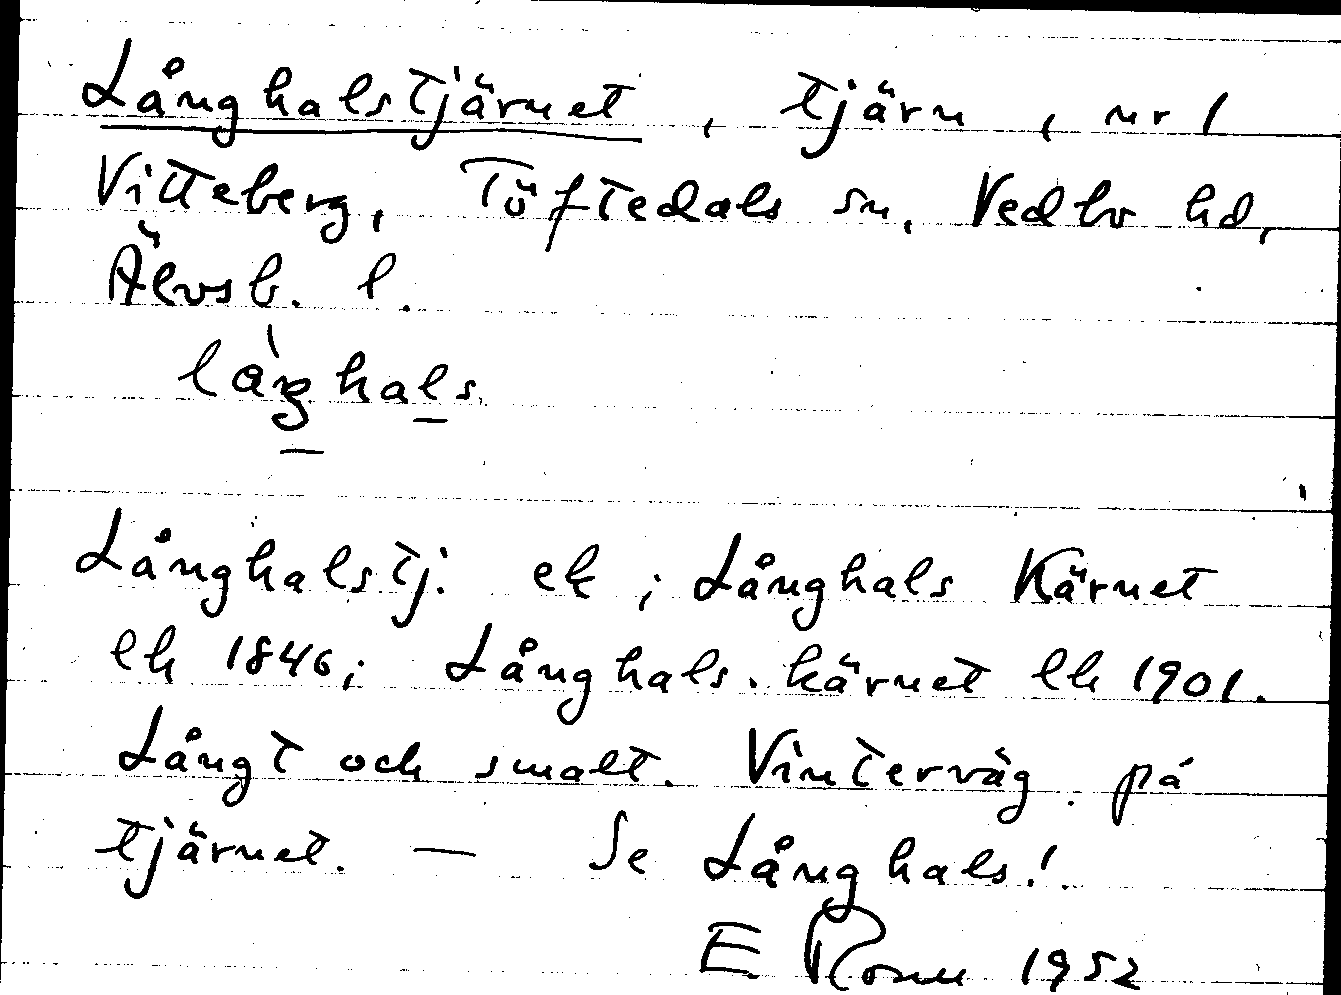 Långhalstjärnet, tjärn, nr 1
Vitteberg, Töftedals sn, Vedbo hd,
Älvsb. l.
làŋhals
Långhalstj. ek; Långhals Kärnet
lh 1846; Långhals-kärnet lh 1901.
Långt och smalt. Vinterväg på
tjärnet. — Se Långhals!
E Rosn 1952